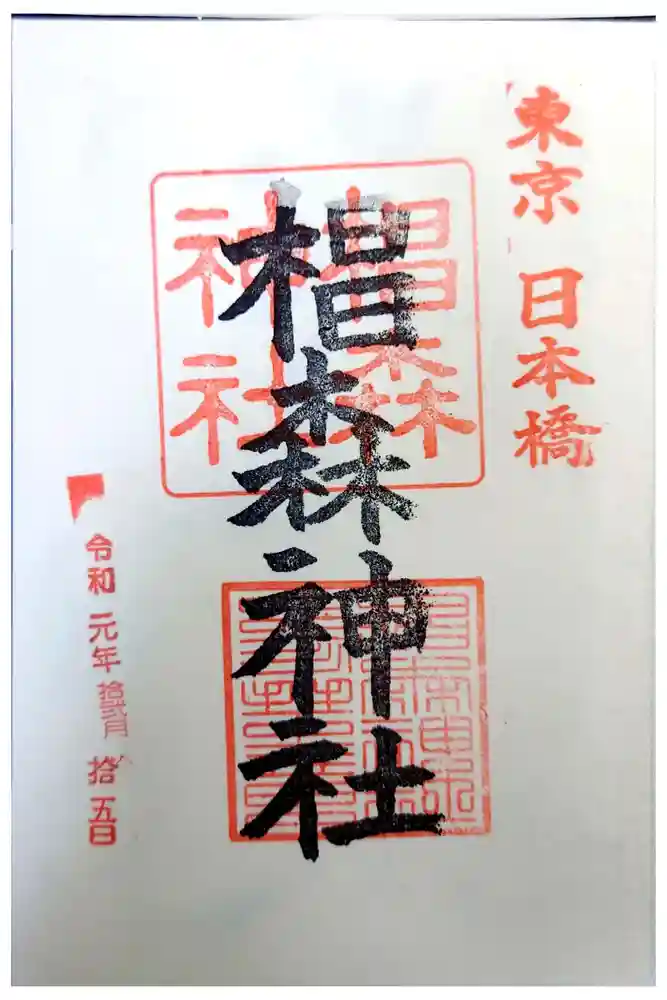 東京 日本橋
椙森神社
椙森
神社
令和元年拾弐月拾五日